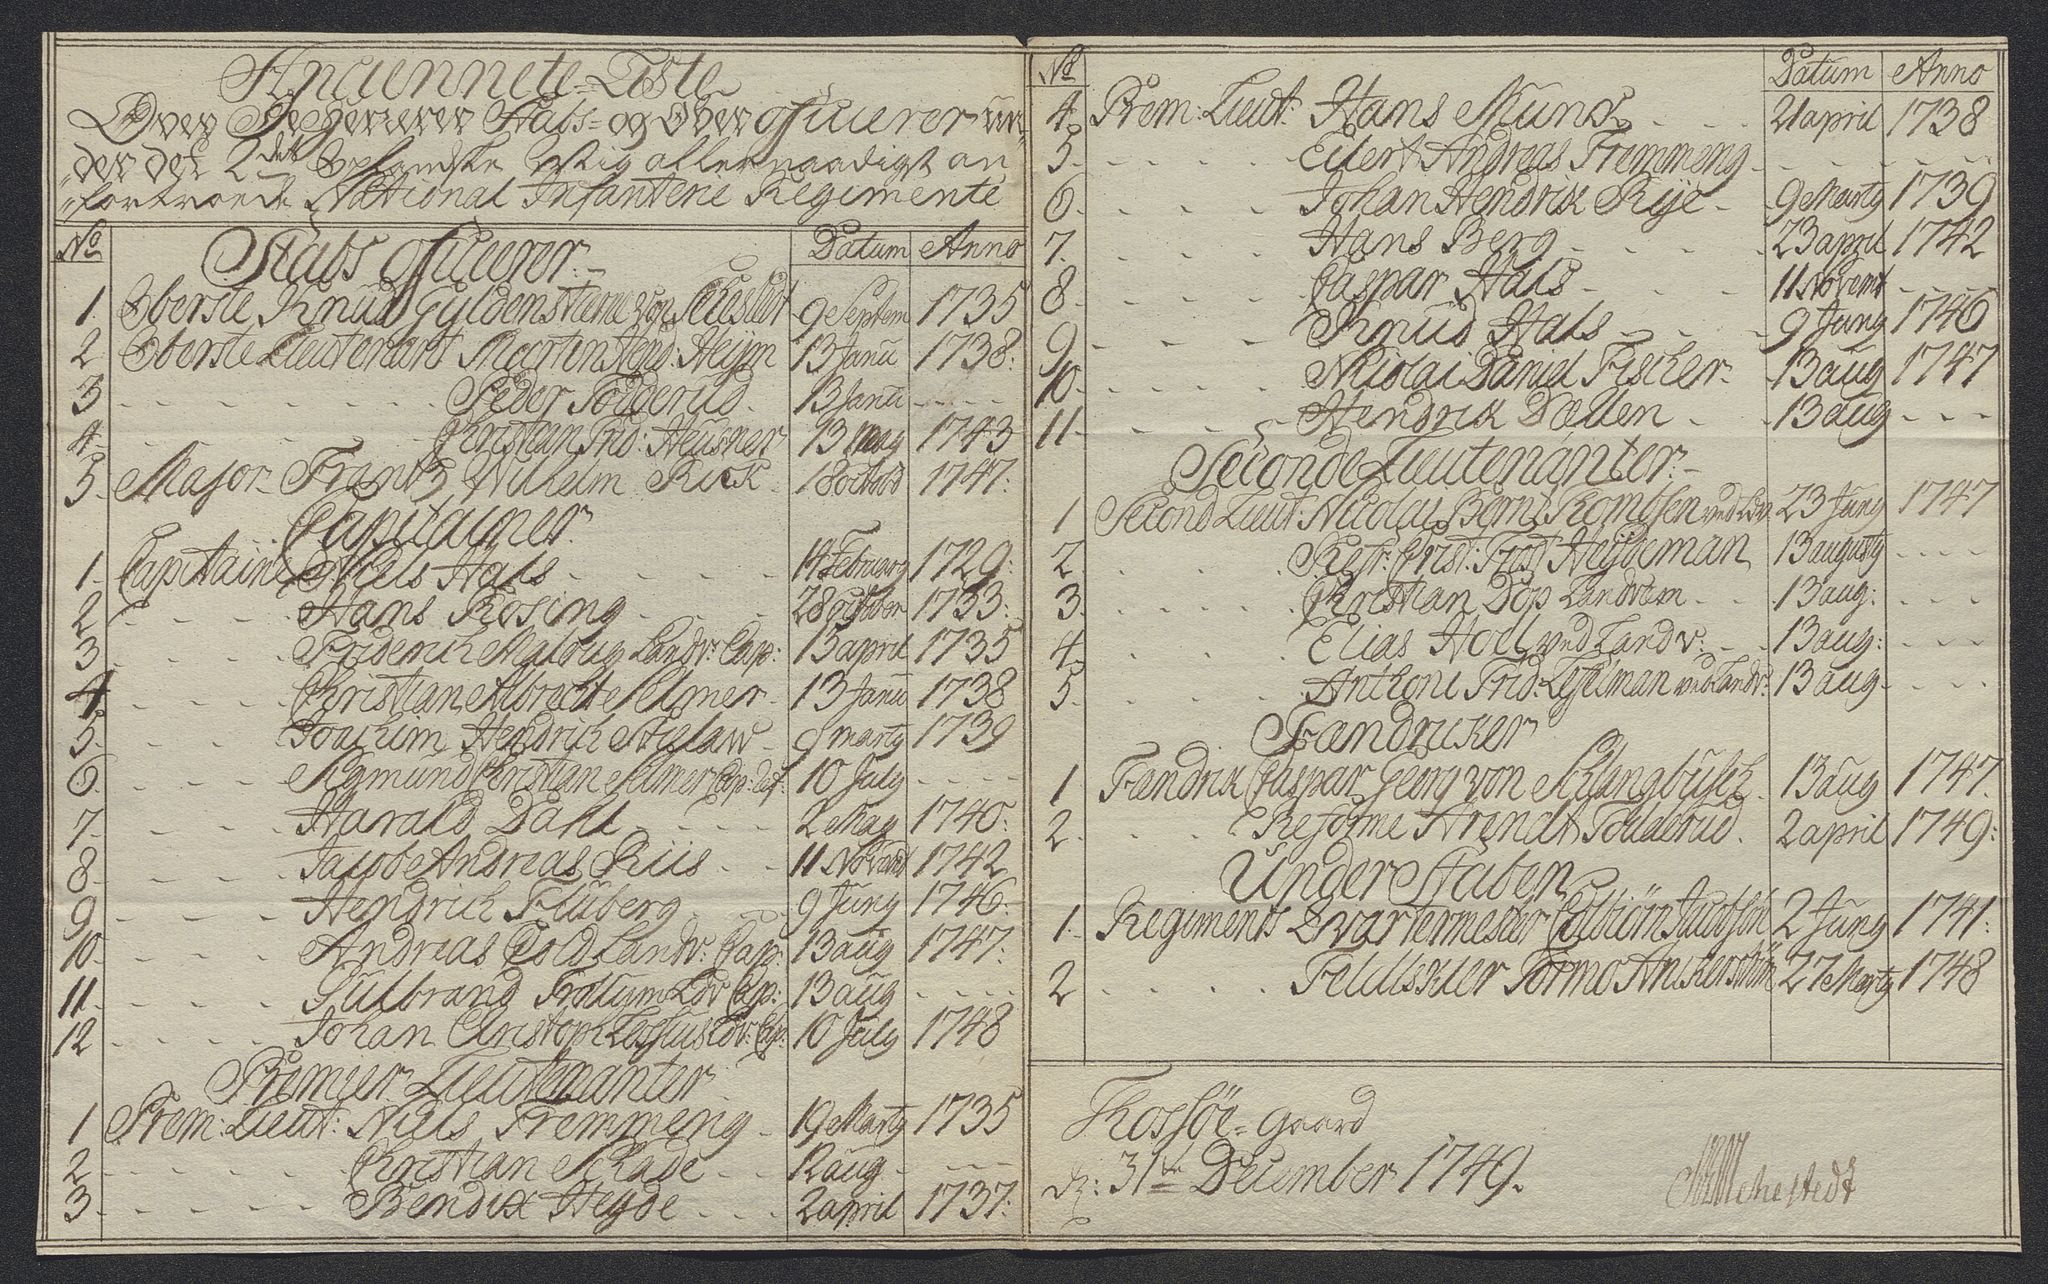 Anciennete-Liste
Over Stabs- og Over officerer un-
der det 2det Oplandske mig allernaadigst an
fortroede National Infanterie Regimente
No Stabs officerer. Datum Anno
1 Oberste Knud Gyldenstierne von Mehestedt 9 Septem 1735
2 Oberste Lieutenant Morten Heym 13 Janu 1738:
3 - - - - Peder Tolderud 13 Janu - - - -
4. - - - - Christian Frid: Heusner 13 May 1743
5. Major Frantz Wilhelm Rick 18 octobr 1747:
Capitainer.
1. Capitaine Niels Hals - - - 14 Februarij 1729:
2 - - - Hans Rosing - - 28 october 1733:
3 - - - Friderich Malbug Landv: Cap: 15 april 1735
4 - - - Christian Albrecht Selmer - 13 Janu 1738
5. - - - Joachim Hendrich - 9 marty 1739
6. - - - Sigmund Christian Selmer Cap: Ref. 10 July - - - -
7. - - - Harald Dahl - - - - 2 May 1740:
8 - - - Jacob Andreas Riis - - 11 Novemb 1742
9 - - - Hendrich Fluberg - - - 9 Juny 1746:
10. - - - Andreas Cold Landv: Cap: 13 aug 1747:
11. - - - Gulbrand Frolym Ldv Cap: 13 aug - - - -
12 - - - Johan Christoph Leshus Ldv: Cap: 10 July 1748
Premier Lieutenanter
1 Prem: Lieut: Niels Fremmeng - 19 Marty 1735
2 - - - - Christian Schade - - 12 aug. - - - -
3. - - - - Bendix Heyde - - - 2 april 1737:
No Datum Anno
4. Prem: Lieut: Hans Munk - - - 21 april 1738
5. - - - - Eilert Andreas Fremmeng - - - - - - -
6. - - - - Johan Hendrik Rije - 9 Marty 1739
7. - - - - Hans Berg - - - 23 april 1742
8 - - - - Caspar Hals - - - 11 Novemb - - - -
9 - - - - Knud Hals - - - 9 Juny 1746
10. - - - - Nicolai Daniel Fischer - 13 aug 1747
11 - - - - Hendrik Dællen - - 13 aug - - - -
Seconde Lieutenanter
1 Second Lieut: Nicolai Bernt Romtsen ved Ldv. 23 Juny 1747
2 - - - - Refr: Christ: Frost Heydeman 13 augusty - - - -
3. - - - - Christian Dop Landvern - - 13 aug: - - - -
4 - - - - Elias Holl ved Landv: - - 13 aug: - - - -
5. - - - - Anthoni Frid: Leselman ved Landv: 13 aug - - - -
Fændricker
1 Fændrik Caspar Georg von Schlangbusch 13 aug 1747.
2. - - - Reforme Arendt Tollderud. 2 april 1749:
Under Staben
1. Regiments Qvartermester Colbiørn Jacobsøn 2 Juny 1741:
2 - - - - Feldtskier Tormo Anckerström 27 Marty 1748
Kossøe-gaard
d: 31te December 1749.
Mehestedt